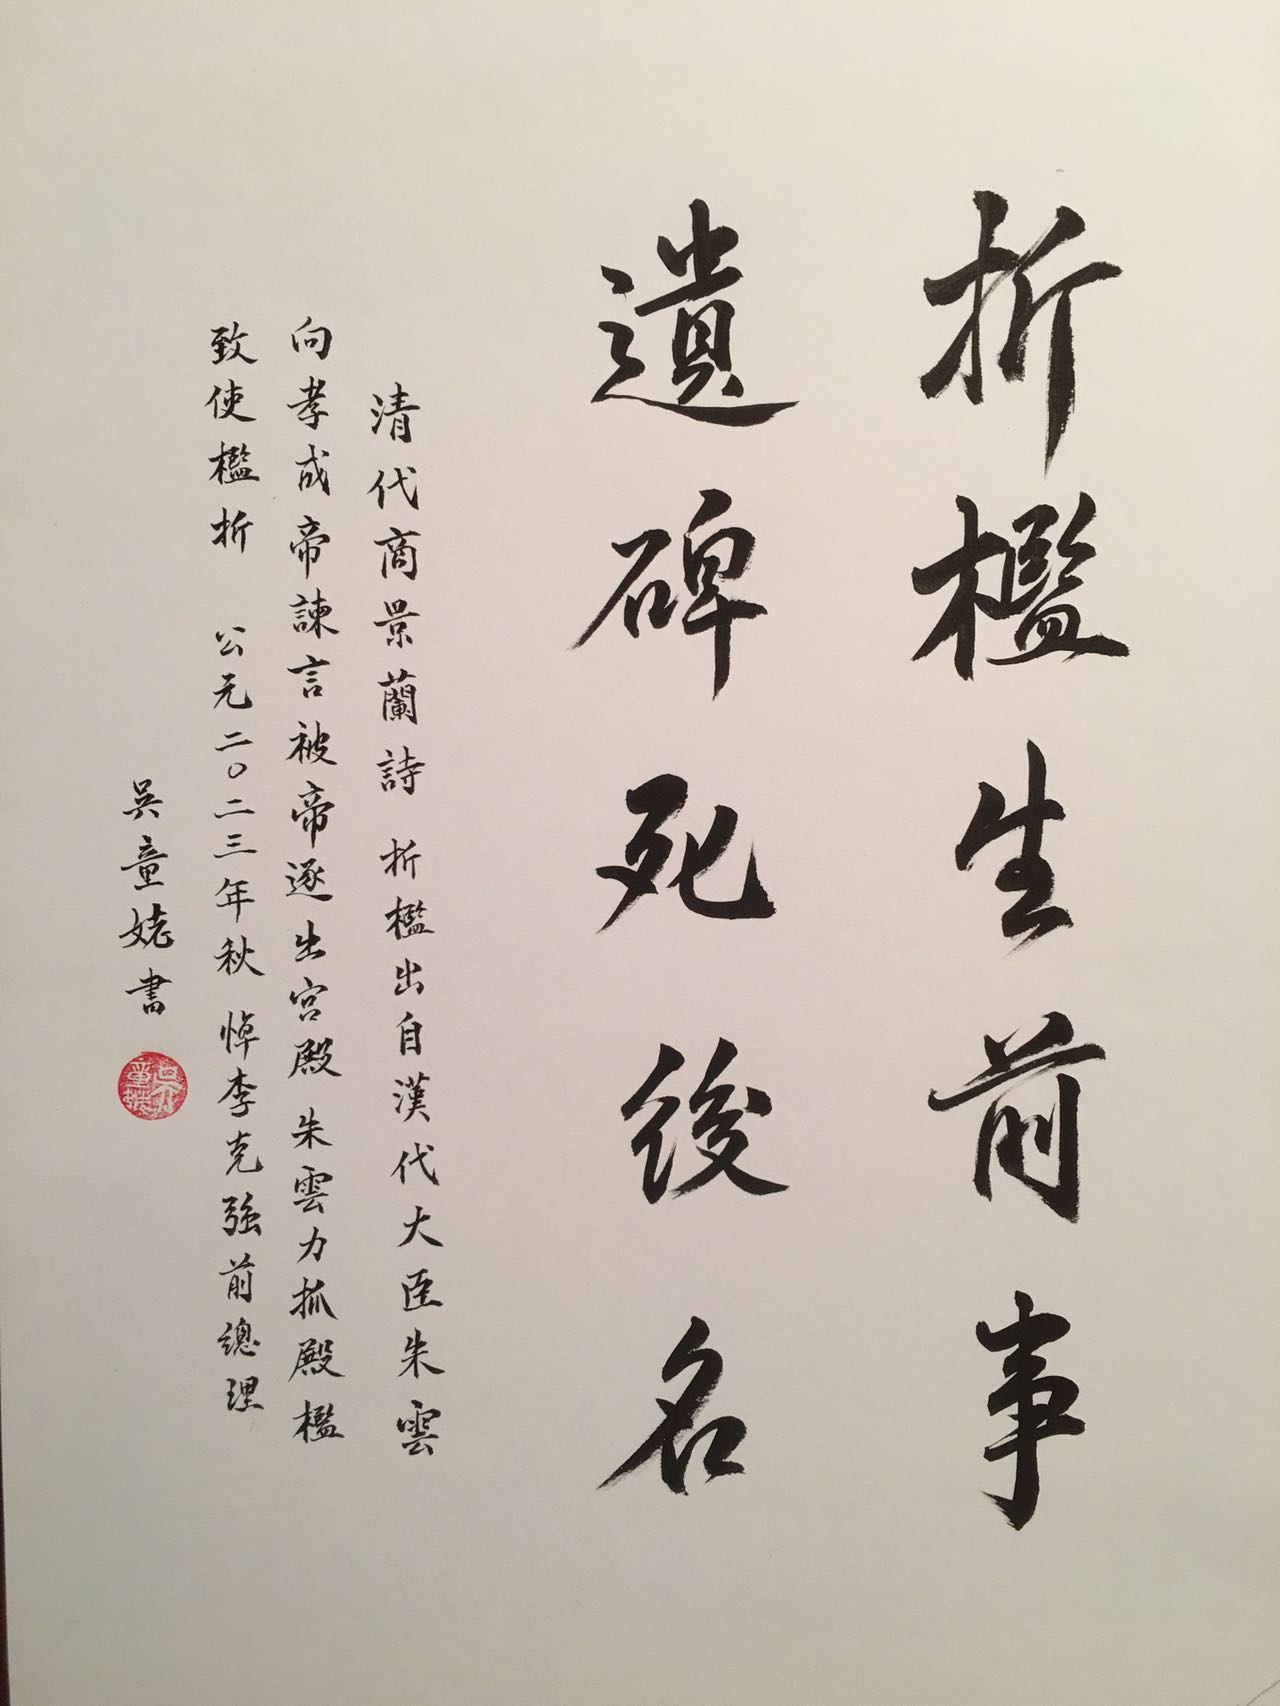 折檻生前事
遺碑死後名
清代商景蘭詩 折檻出自漢代大臣朱雲
向孝成帝諫言被帝逐出宮殿 朱雲力抓殿檻
致使檻折 公元二〇二三年秋 悼李克強前總理
吳童姥書